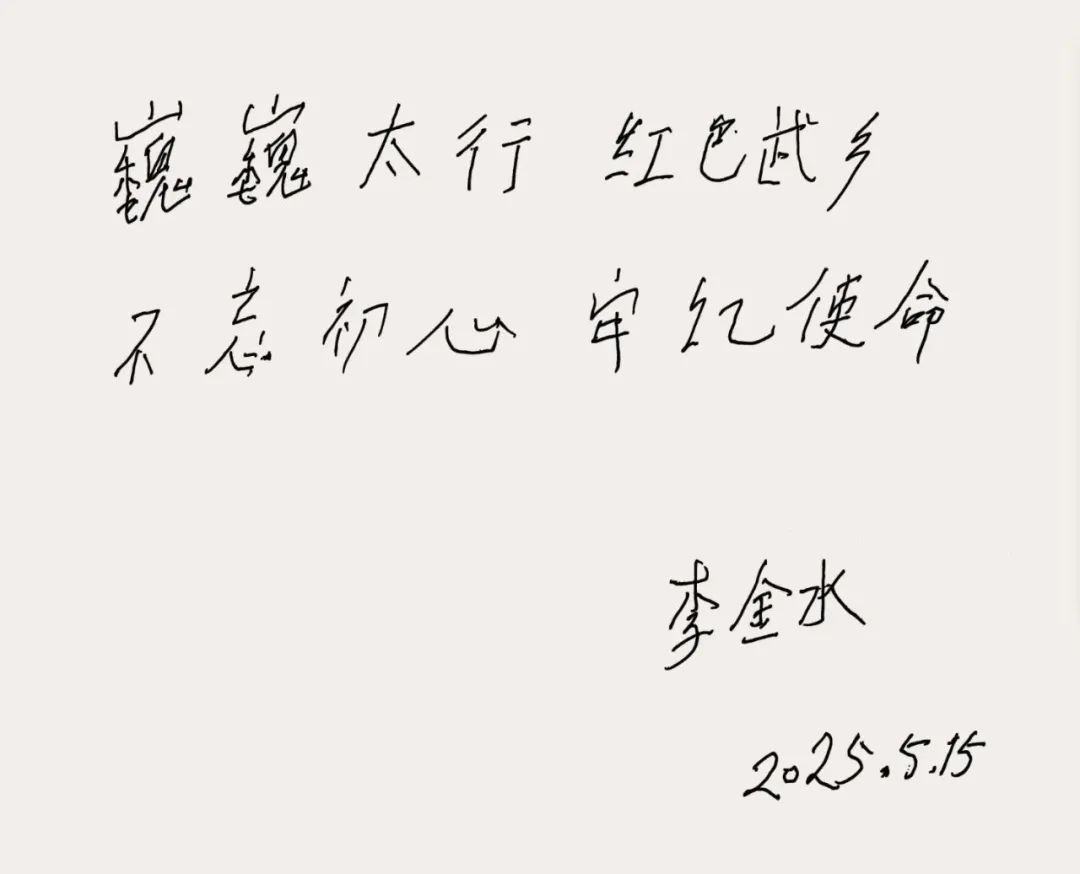 巍巍太行 红色武乡
不忘初心 牢纪使命
李金水
2025.5.15